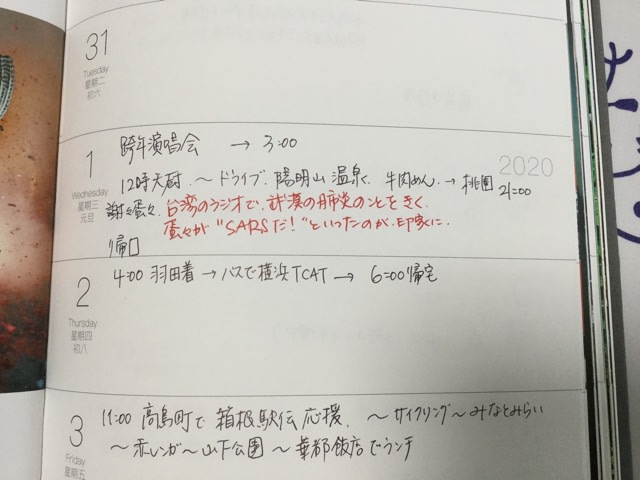 31
Tuesday
星期二
初六
跨年演唱会 → 3:00
1
2020
Wednesday
星期三
元旦
12時大尉.～ドライブ.陽明山温泉.牛肉めん.→桃園 21:00
謝々蛋々.台湾のラジオで、武漢の肺炎のことをきく.
蛋々が"SARSだ!"といったのが、印象に.
帰口
2
Thursday
星期四
初八
4:00 羽田着 → バスで横浜TCAT → 6:00帰宅
3
Friday
星期五
11:00 高島町で 箱根駅伝 応援. ～サイクリング～みなとみらい
～赤レンガ～山下公園～華都飯店でランチ